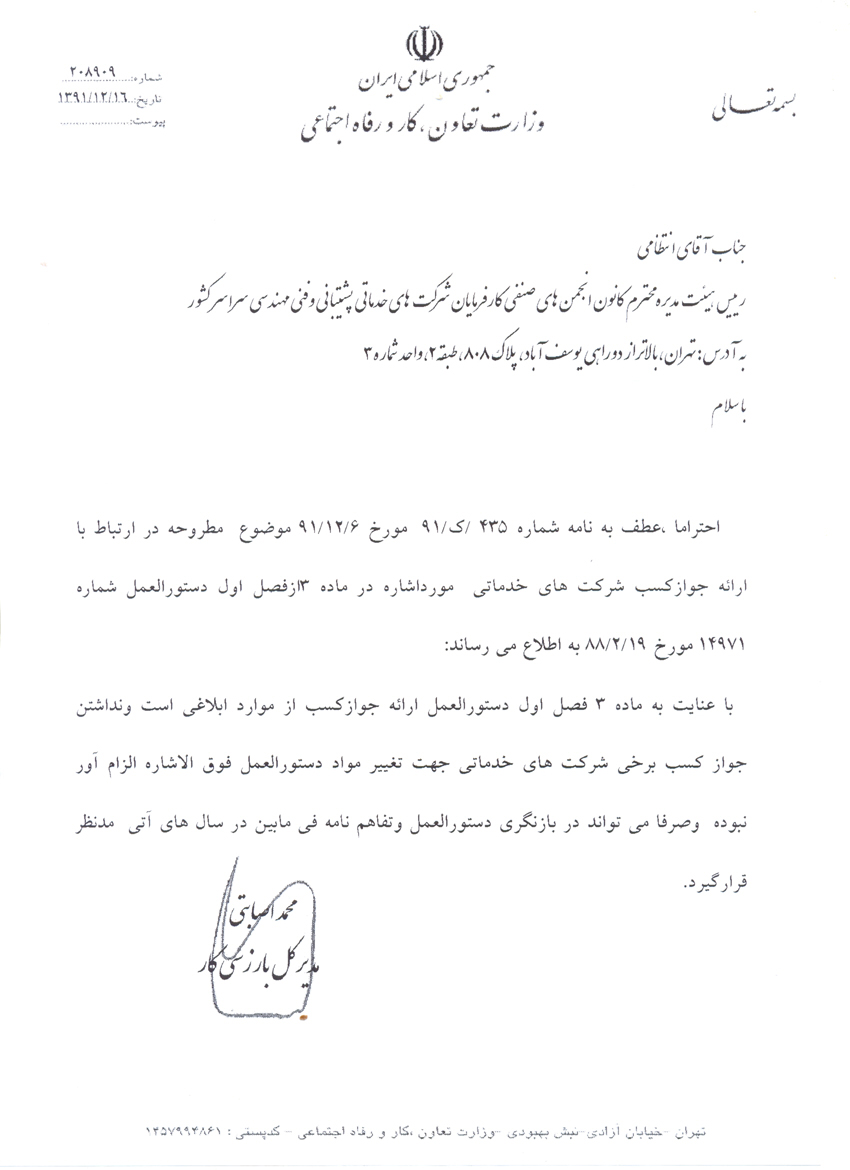 بسمه تعالی
جمهوری اسلامی ایران
وزارت تعاون، کار و رفاه اجتماعی
شماره: ۲۰۸۹۰۹
تاریخ: ۱۳۹۱/۱۲/۱۶
پیوست:
جناب آقای انتظامی
رییس هیئت مدیره محترم کانون انجمن های صنفی کارفرمایان شرکت های خدماتی پشتیبانی و فنی مهندسی سراسر کشور
به آدرس: تهران، بالاتر از دوراهی یوسف آباد، پلاک ۸۰۸، طبقه ۲، واحد شماره ۳
با سلام
احتراما ،عطف به نامه شماره ۴۳۵ /ک/۹۱ مورخ ۹۱/۱۲/۶ موضوع مطروحه در ارتباط با
ارائه جوازکسب شرکت های خدماتی مورداشاره در ماده ۳ازفصل اول دستورالعمل شماره
۱۴۹۷۱ مورخ ۸۸/۲/۱۹ به اطلاع می رساند:
با عنایت به ماده ۳ فصل اول دستورالعمل ارائه جوازکسب از موارد ابلاغی است ونداشتن
جواز کسب برخی شرکت های خدماتی جهت تغییر مواد دستورالعمل فوق الاشاره الزام آور
نبوده وصرفا می تواند در بازنگری دستورالعمل وتفاهم نامه فی مابین در سال های آتی مدنظر
قرارگیرد.
محمد اصابتی
مدیر کل بازرسی کار
تهران -خیابان آزادی-نبش بهبودی -وزارت تعاون ،کار و رفاه اجتماعی - کدپستی : ۱۴۵۷۹۹۴۸۶۱